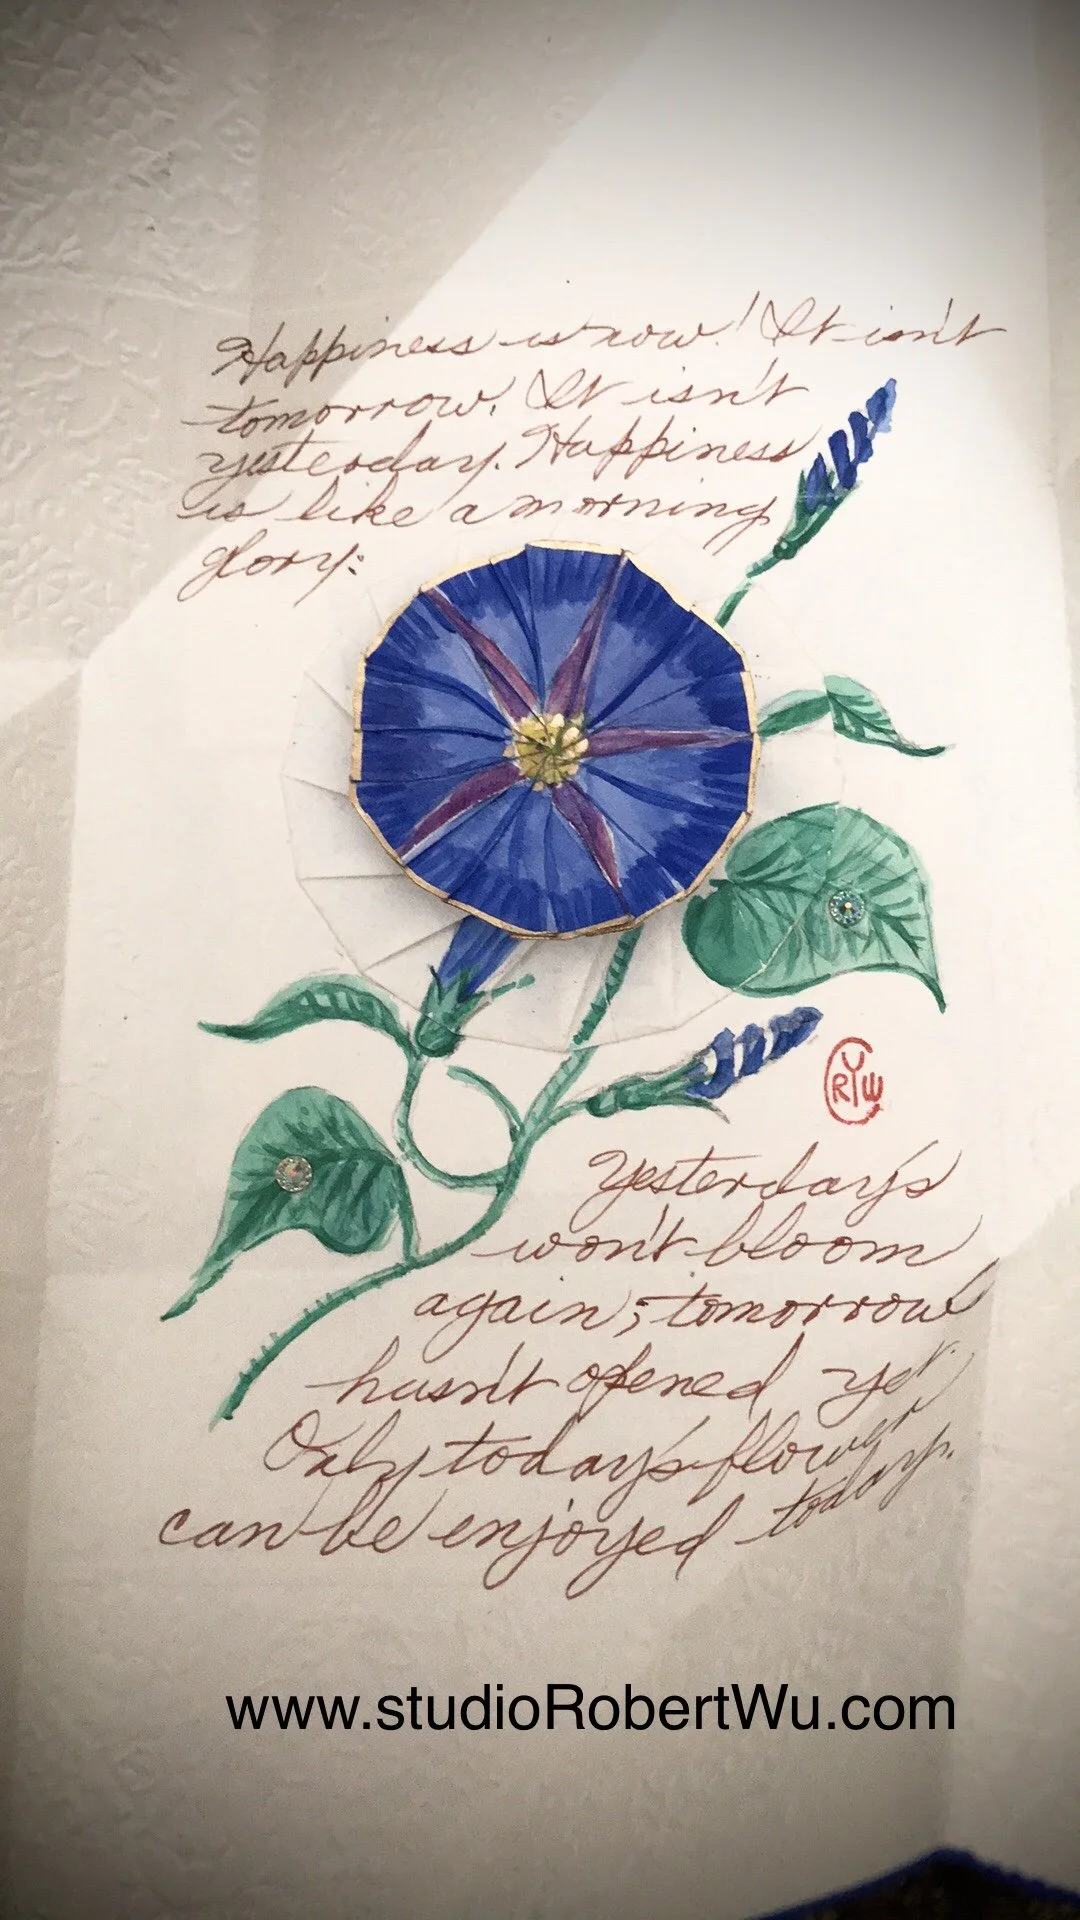 Happiness is now! It isn't
tomorrow. It isn't
yesterday. Happiness
is like a morning
glory:
CRYW
Yesterday's
won't bloom
again; tomorrow
hasn't opened yet.
Only today's flower
can be enjoyed today.
www.studioRobertWu.com